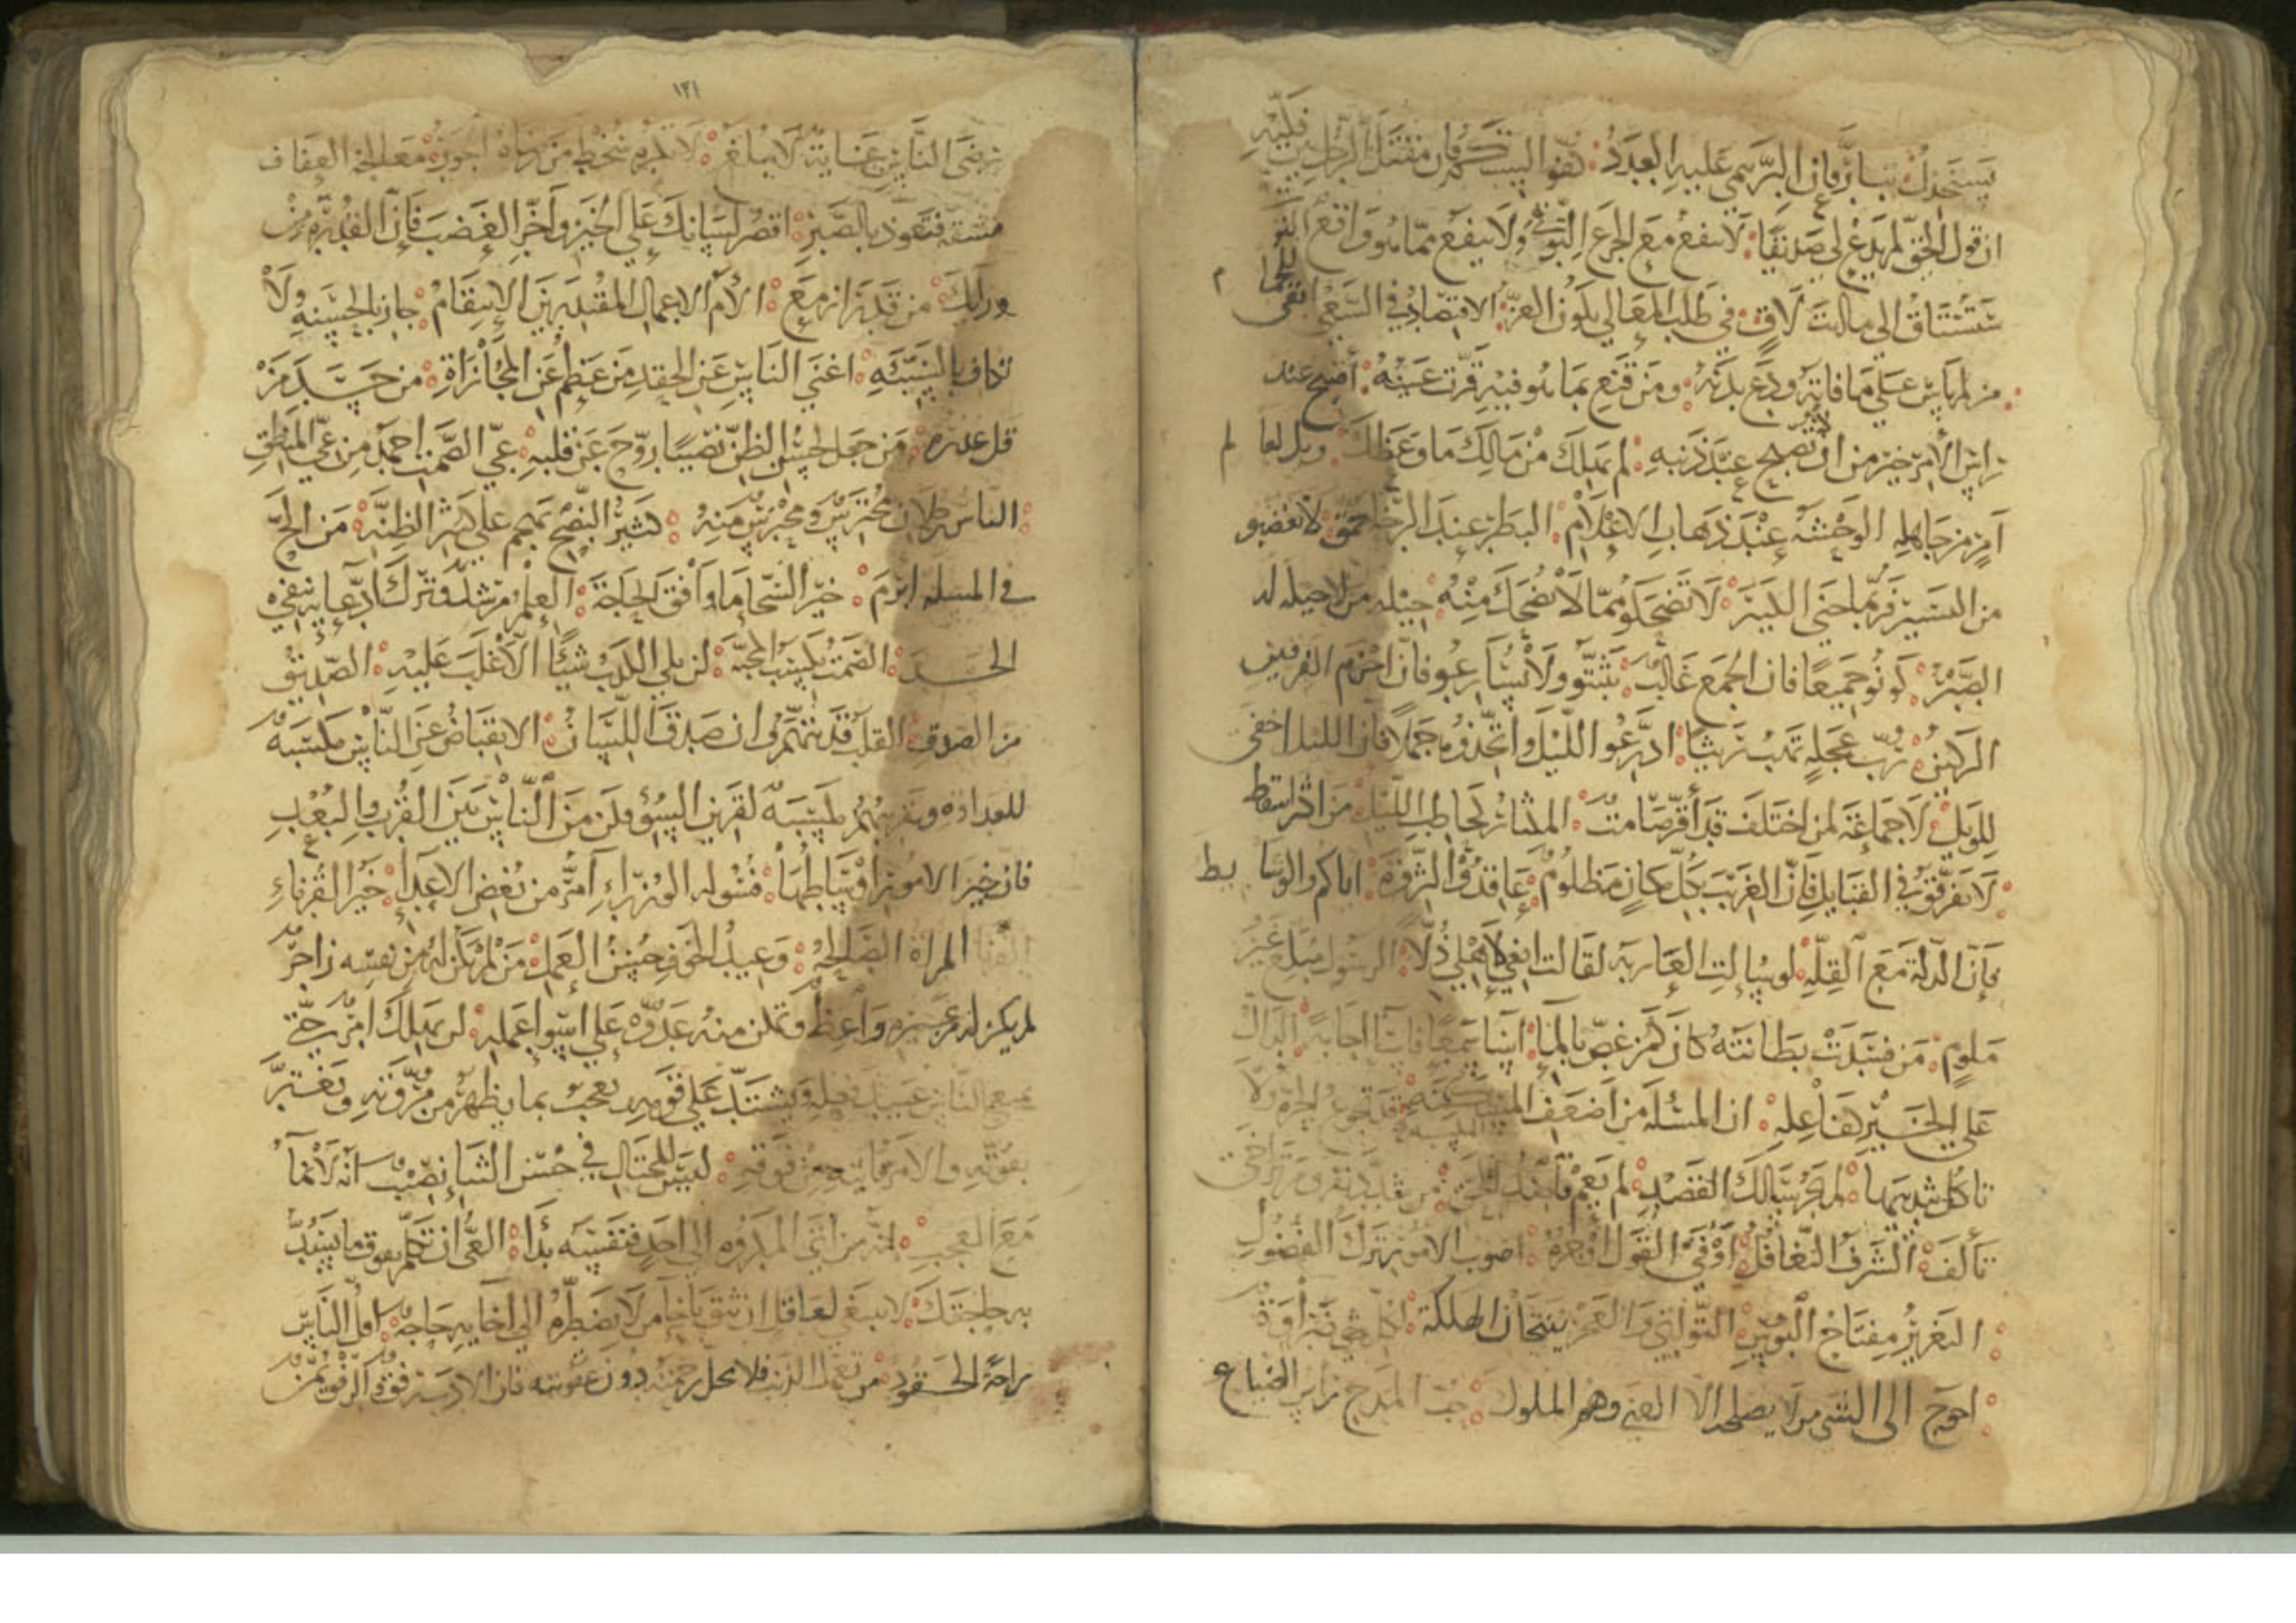 يستنجدك تبارّ فان البرّ ينمى عليه العدد كفوا السنتكم فان مقتل الرجل بين فكيه
ان قول الحق لم يدع لي صديقا لا ينفع مع الجزع التوقي ولا ينفع مما هو واقع التوقي
ستساق الى ما انت لاق في طلب المعالي يكون العز الاقتصاد في السعي ابقى للجمام
من لم ياس على ما فاته ودع بدنه ومن قنع بما هو فيه قرت عينه اصبح عند
راس الامر خير من ان تصبح عند ذنبه لم يهلك من مالك ما وعظك ويل لعالم
امر من جاهله الوحشة عند ذهاب الاعلام البطر عند الرخا حمق لا تغضبو
من اليسير فربما جنى الكثير لا تضحكو مما لا يضحك منه حيلة من لا حيلة له
الصبر كونو جميعا فان الجمع غالب تثبتو ولا تسارعو فان احزم الفريقين
الركين رب عجلة تهب ريثا ادرعوا الليل واتخذوه جملا فان الليل اخفى
للويل لا جماعة لمن اختلف قد اقر صامت المكثار كحاطب الليل من اكثر اسقط
لا تفرقو في القبايل فان الغريب بكل مكان مظلوم عاقدو الثروة اياكم والوشايط
فان الذلة مع القلة لو سالت العارية لقالت ابغي لاهلي ذلا الرسول مبلغ غير
ملوم من فسدت بطانته كان كمن غص بالما اسا سمعا فاسا اجابة الدال
على الخير كفاعله ان المسئلة من اضعف المسكنة قد تجوع الحرة ولا
تاكل بثديها لم يجر سالك القصد لم يعم قاصد الحق من شدد نفر ومن تراخى
تالف الشرف التغافل اوفى القول اوجزه اصوب الامور ترك الفضول
التغرير مفتاح البوس التواني والعجز ينتجان الهلكة لكل شي ضراوة
احوج الى الشى من لا يصلحه الا الغنى وهم الملوك حب المدح راس الضياع
١٢١
رضى الناس غاية لا تبلغ لا تكره سخط من رضاه الجور معالجة العفاف
مشقة فتعوذ بالصبر اقصر لسانك على الخير واخر الغضب فان القدرة من
ورايك من قدر ازمع الأم الاعمال المقتدرين الانتقام جاز بالحسنة ولا
تكاف بالسيئة اغنى الناس عن الحقد من عظم عن المجازاة من حسد من
قل عذره من جعل لحسن الظن نصيبا روح عن قلبه عي الصمت احمد من عي المنطق
الناس رجلان محترس ومحترس منه كثير النصح يهجم على كثير الظنة من الح
في المسئلة ابرم خير السخا ما وافق الحاجة العلم مرشد وترك ادعايه ينفي
الحسد الصمت يكسب المحبة لن يلي الكذب شيئا الا غلب عليه الصديق
من الصدق القلب قد يتهم وان صدق اللسان الانقباض عن الناس مكسبة
للعداوة وتقريبهم مكسبة لقرين السوء فكن من الناس بين القرب والبعد
فان خير الامور اوساطها فسولة الوزراء اضر من بغض الاعداء خير القرناء
المراة الصالحة وعند الخوف حسن العمل من لم يكن له من نفسه زاجر
لم يكن له من غيره واعظ وتمكن منه عدوه على اسوا عمله لن يهلك امرؤ حتى
الناس عتيد فعله ويشتد على قومه يعجب بما يظهر من مروته ويغتر
بقوته والامر ياتيه من فوقه ليس للمختال في حسن الثنا نصيب انه لا نما
مع العجب انه من اتى المكروه الى احد فنفسه بدا العي ان تكلم بفوق ما يسد
به حاجتك لا ينبغي لعاقل ان يثق باخا من لا تضطره الى اخايه حاجة اقل الناس
راحة الحسود من تعمد الذنب فلا تحل رحمته دون عقوبته فان الادب رفق والرفق يمن